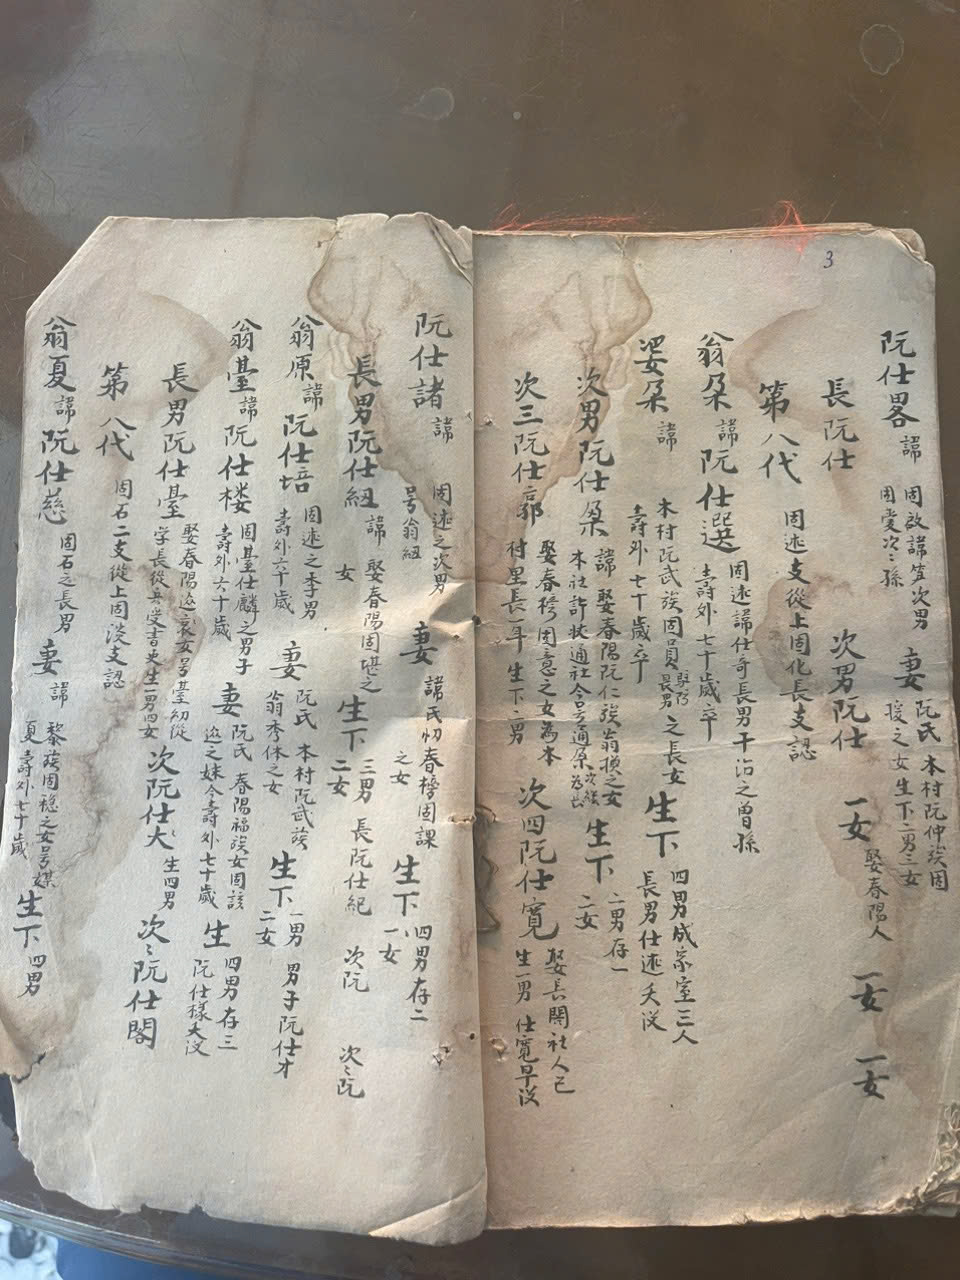 3
阮仕畧 諱 固啟諱笪次男 固愛次〻孫 妻 阮氏 本村阮仲族固 之女 生下二男三女
長阮仕 次男阮仕 一女 娶春陽人 一女 一女
第八代 固述支從上固化長支認
翁朶 諱 阮仕選 固述諱仕奇長男干治之曾孫 壽外七十歲卒
婆朶 諱 本村阮武族固員 之長女 壽外七十歲卒 生下 四男成家室三人 長男仕述夭没
次男阮仕朶 諱 娶春陽阮仁族翁換之女 本社許狀通社令 通原 生下 二男存一 二女
次三阮仕郭 娶春榜固意之女為本村里長一年 生下二男 次四阮仕寬 娶長閈社人已生一男 仕寬早没
阮仕諸 諱 固述之次男 号翁紐 妻 諱氏忉春榜固課之女 生下 四男存二 一女
長男阮仕紐 諱 娶春陽固堪之女 生下 三男 二女 長阮仕紀 次阮 次〻阮
翁原 諱 阮仕培 固述之季男 壽外六十歲 妻 阮氏 本村阮武族翁秀休之女 生下 一男 二女 男子阮仕才
翁臺 諱 阮仕楼 固臺仕麟之男子 壽外六十歲 妻 阮氏 春陽福族女固該 之妹今壽外七十歲 生 四男存三 阮仕樣大没
長男阮仕臺 娶春陽 女号臺幼從學長從兵受書吏生一男四女 次阮仕大 生四男 次〻阮仕閣
第八代 固石二支從上固淡支認
翁夏 諱 阮仕慈 固石之長男 妻 諱 黎族固穏之女号媒 夏壽外七十歲 生下 四男